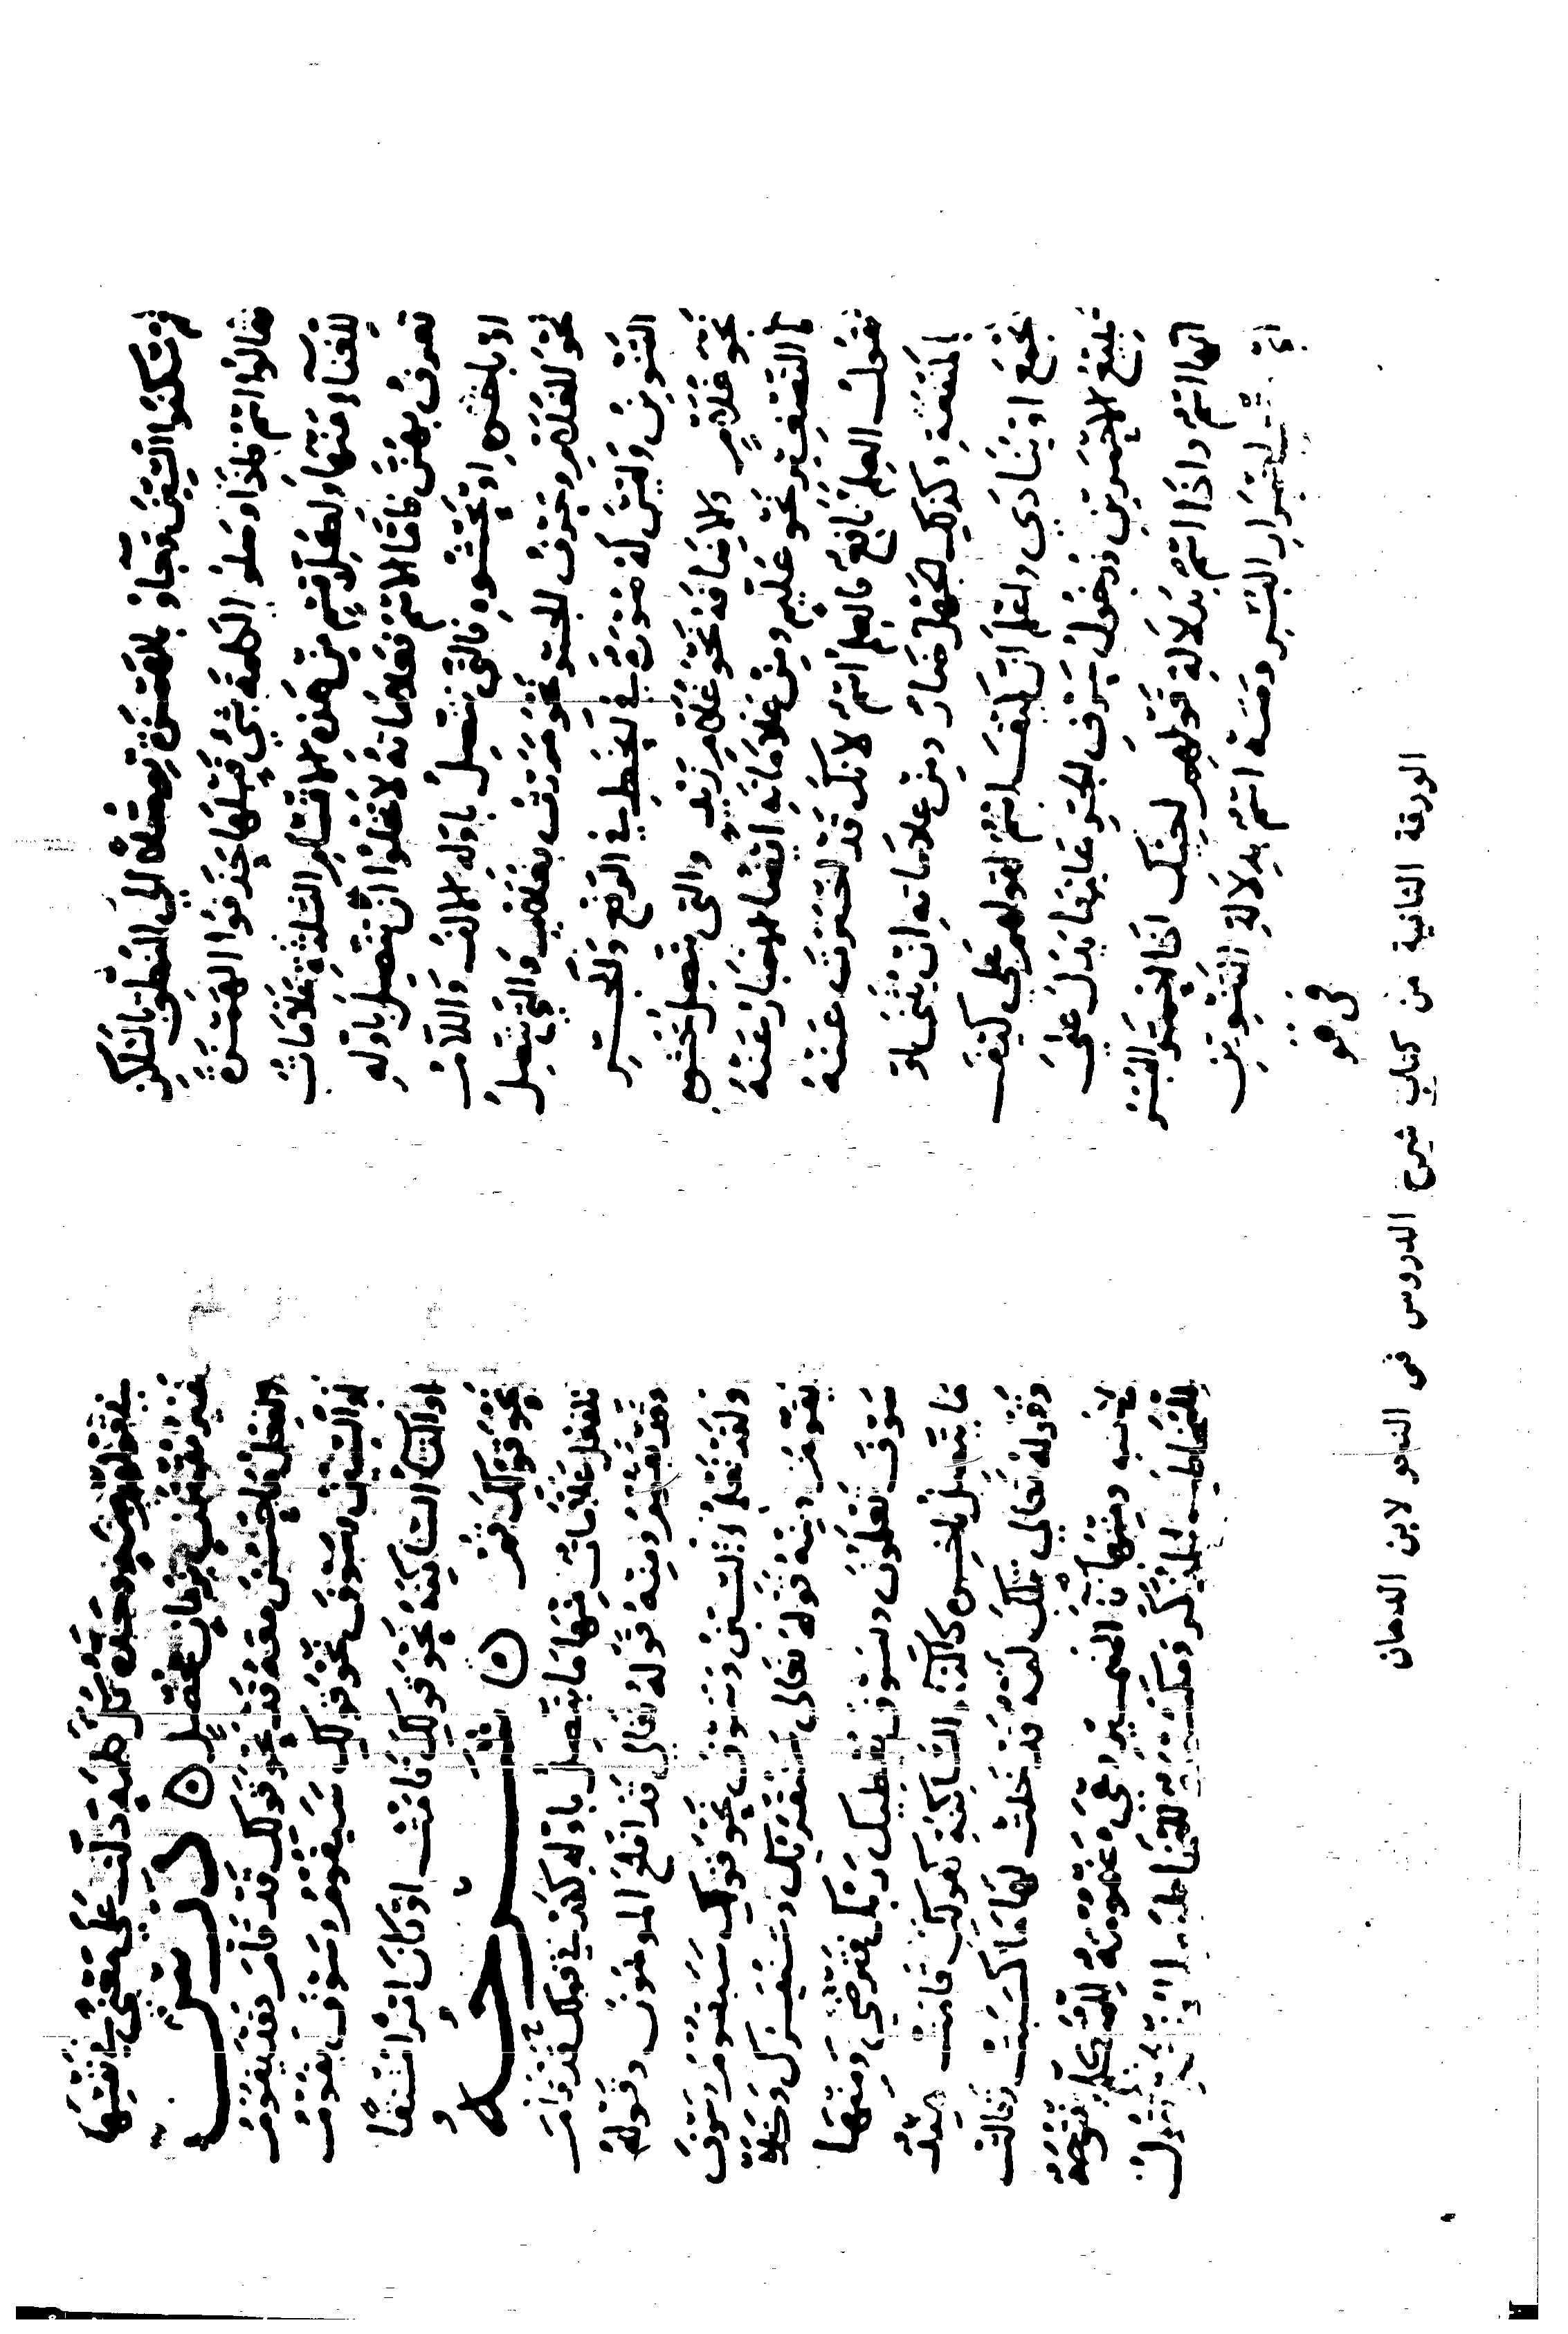 ثم سكنوا السين فجاؤ بالهمزة توصلاً الي النطق بالساكن
فقالوا اسم فلما وصلوا الكلمة بشي قبلها حذفوا الهمزة
للغناء عنها ولكل قسم من هذه الاقسام الثلثة علامات
تعرف بهن فاما الاسم فعلاماته لا تخلوا ان تتصل باوله
او باخره او بحشوه فالتي تتصل باوله الالف واللام
نحو الغلام وحروف الجر نحو مررت والتي تتصل
التنوين وليس له صورة في الخط في الرفع والجر
نحو غلام والاضافة نحو غلام زيد والتي تتصل بحشوه
يا التصغير نحو غليم ومن علاماته ايضا الاخبار عنه
تقول العلم نافع فالعلم اسم لانك قد اخبرت عنه
بالمنفعة وكذلك الجهل ضار ومن علاماته ان يثنى او
يجمع او ينادي واعلم ان كيف اسم لقولهم علي كيف
تبيع الاحمرين ودخول حرف الجر عليها يدل علي
انها اسم واذا اسم بدلالة قولهم اجيئك اذا احمر البسر
احمرار البسر ومه اسم بدلالة التنوين
في هو
حده كل كلمة دلت علي معني في نفسها
غير مقترن بزمان محصل ٥ درس
الفعل ما حسن معه قد نحو قولك قد قام وقد يقوم
او السين وسوف نحو قولك سيقوم وسوف يقوم
او التاء الساكنة نحو قولك قامت او كان امرا مشتقا
نحو قولك قم ٥ شرحه
للفعل علامات منها ما يتصل باوله كقد في قولك قد قام
وقد يقوم ومنه قوله تعالي قد افلح المومنون وقوله
ولقد نعلم والسين وسوف نحو قولك سيقوم وسوف
يقوم ومنه قوله تعالى سنقريك وسنيسرك وكلا
سوف تعلمون ولسوف يعطيك ربك فترضي ومنها
ما يتصل باخره كالتاء الساكنة كقولك قامت هند
وقوله تعالي تلك امة قد خلت لها ما كسبت وقالت
ومنها تاء الضمير وهي مضمومة للمتكلم مفتوحة
للمخاطب المذكر ومكسورة للمخاطبة تقول
الورقة الثانية من كتاب شرح الدروس فى النحو لابن الدهان